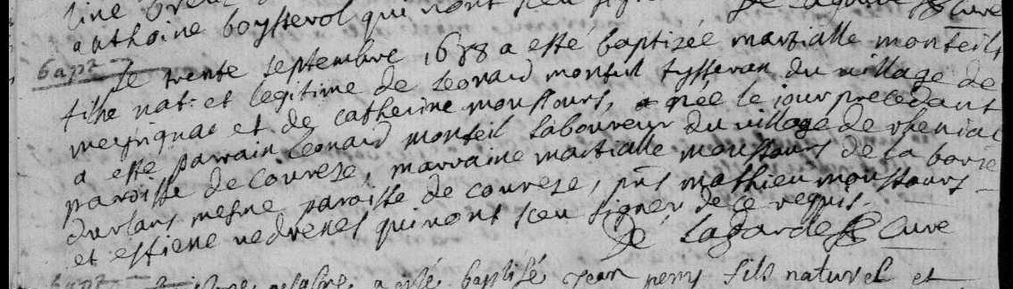 anthoine boysserol qui n'ont sceu signer De Lagarde Curé
bapt Le trente septembre 1688 a esté baptizée martialle monteils
fille nat: et legitime de Leonard monteil tysseran du village de
meyrignac et de catherine moustours, née le jour precedant
a esté parrain Leonard monteil laboureur du village de
paroisse de correze, marraine martialle moustours de la borie
mesme paroisse de correze, pñs mathieu moustours
et estiene vedrenes qui n'ont sceu signer de ce requis.
De Lagarde Curé
bapt a esté baptisé Jean peny fils naturel et